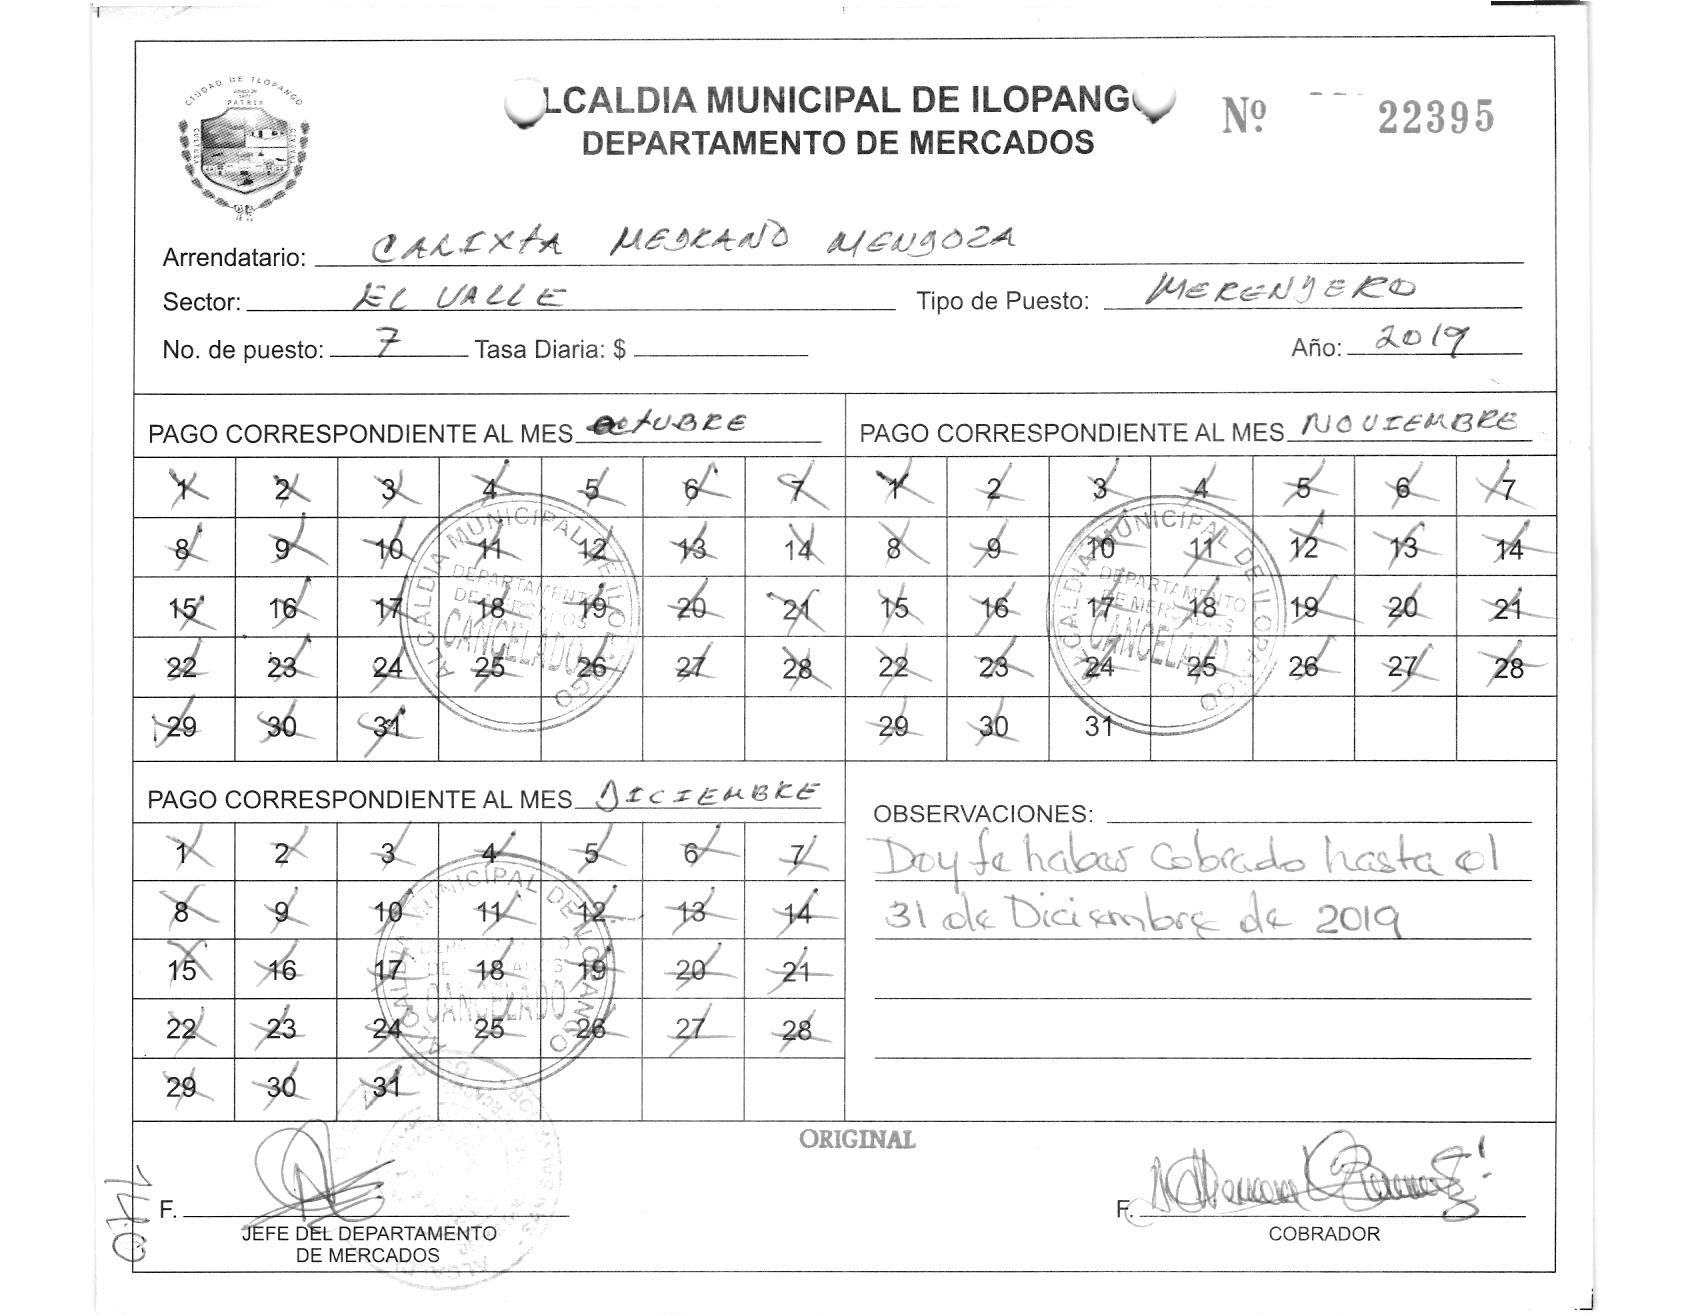 CIUDAD DE ILOPANGO
PATRIA
LCALDIA MUNICIPAL DE ILOPANGO
Nº 22395
DEPARTAMENTO DE MERCADOS
Arrendatario: CALIXTA MEDRANO MENDOZA
Sector: EL VALLE Tipo de Puesto: MERENDERO
No. de puesto: 7 Tasa Diaria: $ Año: 2019
PAGO CORRESPONDIENTE AL MES OCTUBRE
1 2 3 4 5 6 7
8 9 10 11 12 13 14
15 16 17 18 19 20 21
22 23 24 25 26 27 28
29 30 31
ALCALDIA MUNICIPAL DE ILOPANGO
DEPARTAMENTO
DE MERCADOS
CANCELADO
PAGO CORRESPONDIENTE AL MES NOVIEMBRE
1 2 3 4 5 6 7
8 9 10 11 12 13 14
15 16 17 18 19 20 21
22 23 24 25 26 27 28
29 30 31
ALCALDIA MUNICIPAL DE ILOPANGO
DEPARTAMENTO
DE MERCADOS
CANCELADO
PAGO CORRESPONDIENTE AL MES DICIEMBRE
1 2 3 4 5 6 7
8 9 10 11 12 13 14
15 16 17 18 19 20 21
22 23 24 25 26 27 28
29 30 31
ALCALDIA MUNICIPAL DE ILOPANGO
CANCELADO
OBSERVACIONES:
Doy fe haber cobrado hasta el
31 de Diciembre de 2019
ORIGINAL
F.
JEFE DEL DEPARTAMENTO
DE MERCADOS
F.
COBRADOR